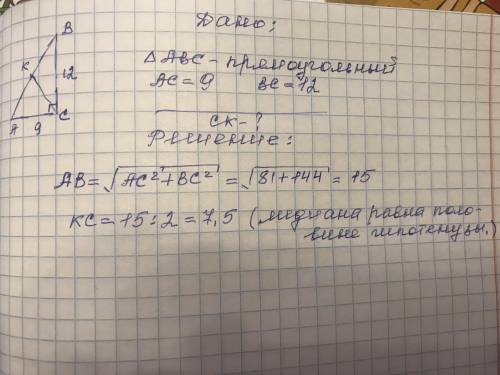 Дано:
B
K
12
A
9
C
△ABC - прямоугольный
AC = 9 BC = 12
CK - ?
Решение:
AB = √AC²+BC² = √81+144 = 15
KC = 15 : 2 = 7,5 (медиана равна поло-
вине гипотенузы.)